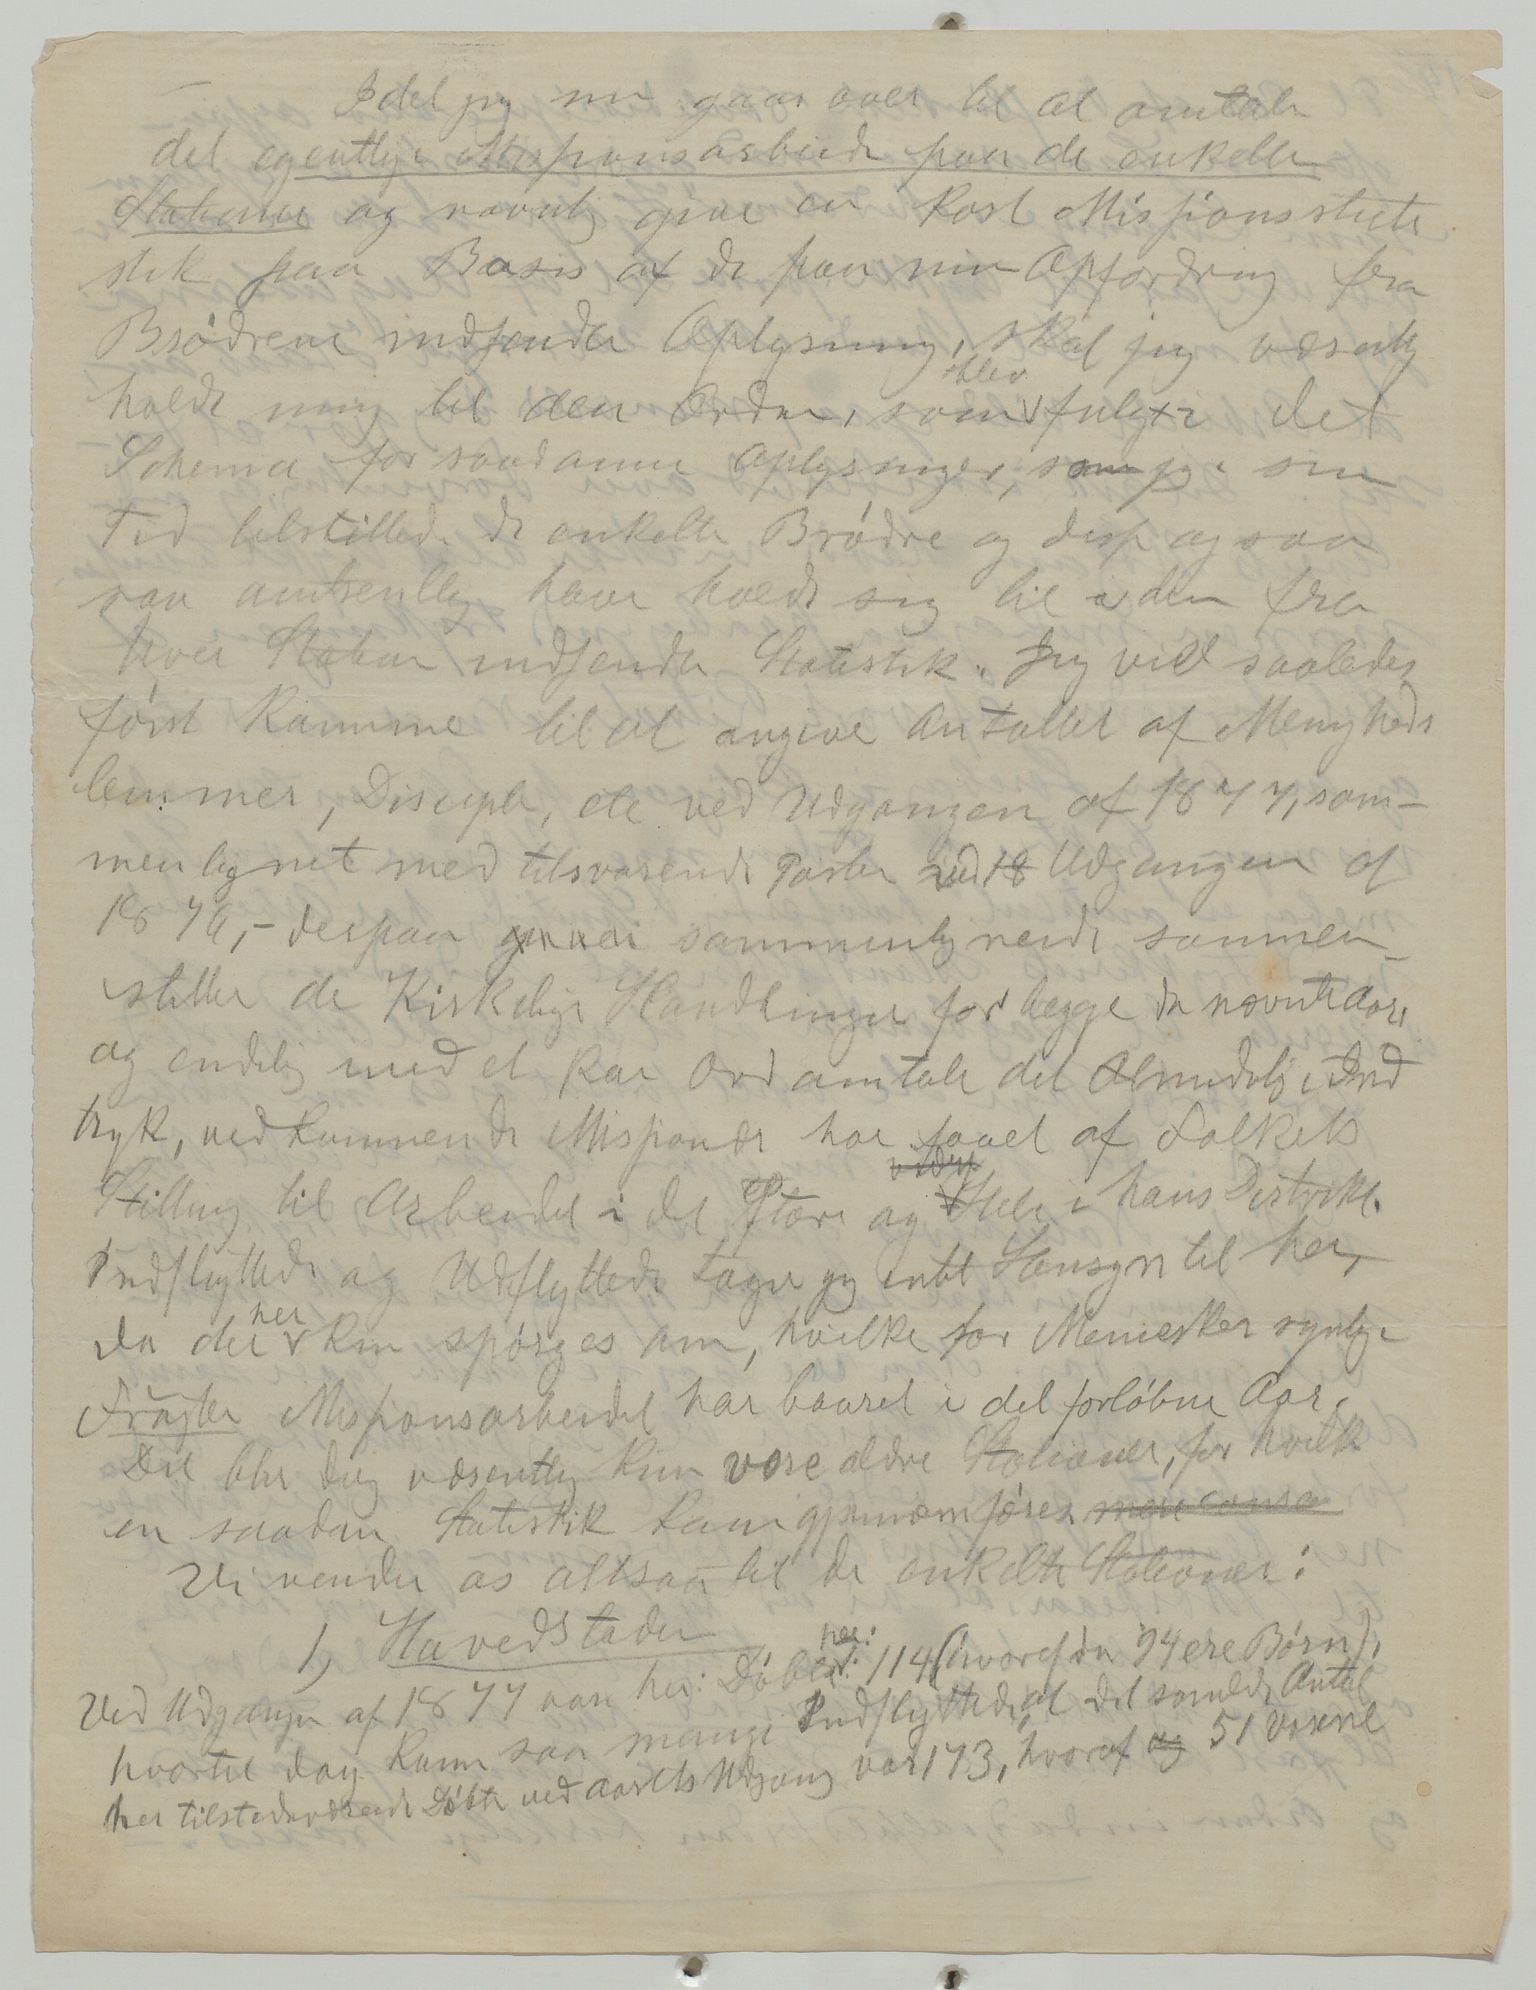 Idet jeg nu gaar over til at omtale
det egentlige Missionsarbeide paa de enkelte
Stationer og navnlig give en kort Missionsstati
stik paa Basis af de paa min Opfordring fra
Brødrene indsendte Oplysning, skal jeg væsentlig
holde mig til den Orden, som blev fulgt i det
Schema for saadanne Oplysninger, som jeg i sin
Tid tilstillede de enkelte Brødre og disse ogsaa
saa omtrentlig have holdt sig til i den fra
hver Station indsendte Statistik. Jeg vil saaledes
først komme til at angive Antallet af Menigheds
lemmer, Disciple, etc ved Udgangen af 1877, sam-
menlignet med tilsvarende Poster ved 18 Udgangen af
1876,- desspaa sammenlignende sammen-
stille de Kirkelige Handlinger for begge de nævnte Aar,
og endelig med et Par Ord omtale det Almindelige Ind
tryk, vedkommende Missionær har faaet af Folkets
Stilling til Arbeidet i det Større og Hele i hans Distrikt.
Indflyttede og Udflyttede tager jeg intet Hensyn til her,
da der her kun spørges om, hvilke for Mennesker synlige
Frugter Missionsarbeidet har baaret i det forløbne Aar.
Det blir dog væsentlig kun vore ældre Stationer, for hvilke
en saadan Statistik kan gjennemføres
Vi vender os altsaa til de enkelte Stationer:
1, Hovedstaden
Ved Udgangen af 1877 var her: Døbte her: 114 (hvoraf da 94 ere Børn),
hvortil dog kom saa mange Indflyttede, at det samlede Antal
her tilstedeværende Døbte ved Aarets Udgang var 173, hvoraf og 51 voxne